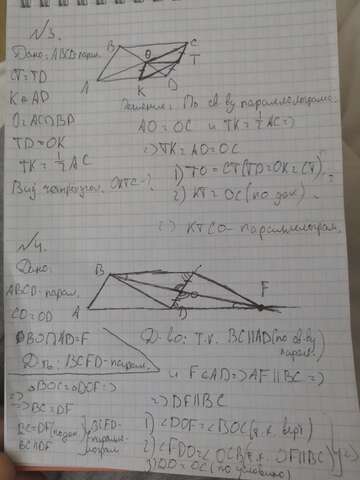 №3.
Дано: ABCD-парал.
CT=TD
K∈AD
O=AC∩BD
TD=OK
TK=1/2 AC
Вид четырехугол. OKTC-?
B
C
O
T
A
K
D
Решение: По св-ву параллелограма
AO=OC и TK=1/2 AC=>
=> TK=AO=OC
1) TO=CT(TD=OK=CT)
2) KT=OC(по док)
=> KTCO- параллелограм.
№4.
Дано:
ABCD-парал.
CO=OD
BO∩AD=F
Д-ть: BCFD-парал.
B
A
D
F
Д-во: т.к. BC||AD(по св-ву парал.
и F∈AD=>AF||BC=>
=> DF||BC
1) ∠DOF=∠BOC(т.к. верт)
2) ∠FDO=∠OCB(т.к. DF||BC)
3) DO=OC(по условию)
=>
△BOC=△DOF=>
=> BC=DF
BC=DF(по док)
BC||DF
BCFD-
паралле-
лограм